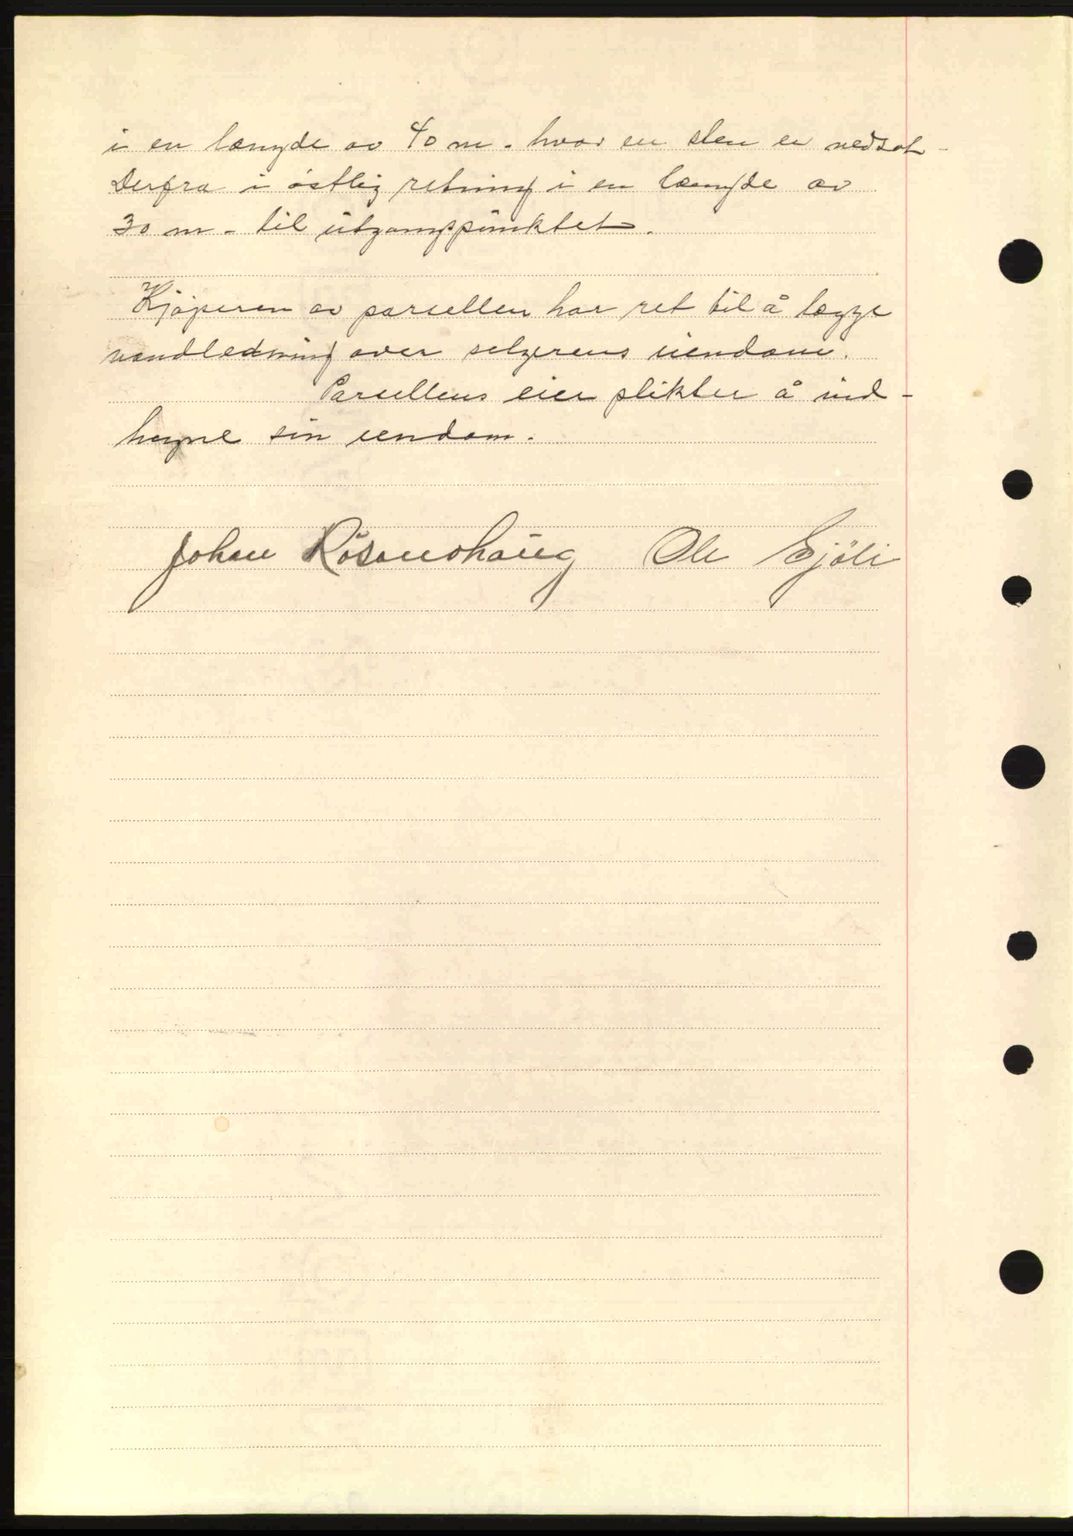 i en længde av 40 m. hvor en sten er nedsat.
Derfra i østlig retning i en længde av
30 m. til utgangspunktet.
Kjøperen av parsellen har ret til å lægge
vandledning over selgerens eiendom.
Parsellens eier plikter å ind-
hegne sin eiendom.
Johan Rosenshaug Ole Gjøli